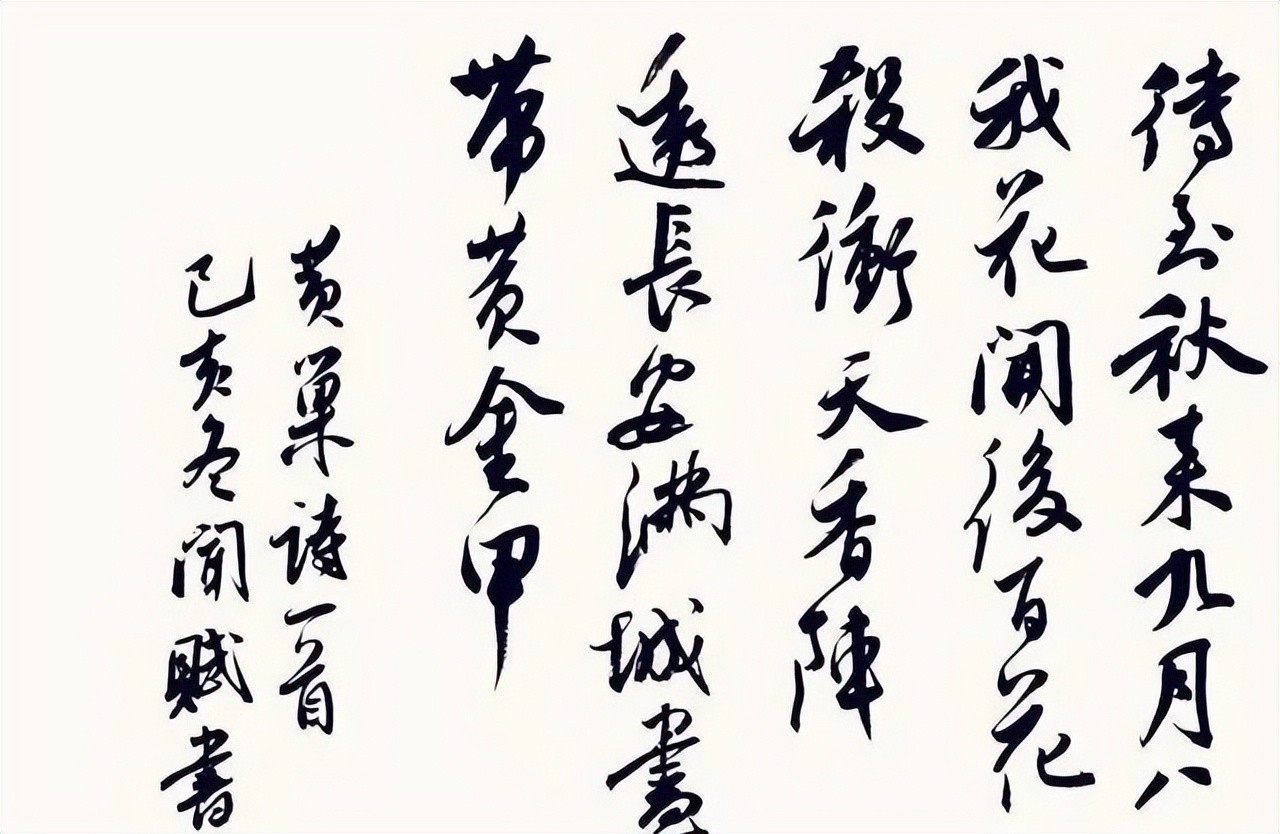 待到秋来九月八
我花開後百花
殺衝天香陣
透長安滿城盡
帶黃金甲
黃巢詩一首
己亥冬聞賦書